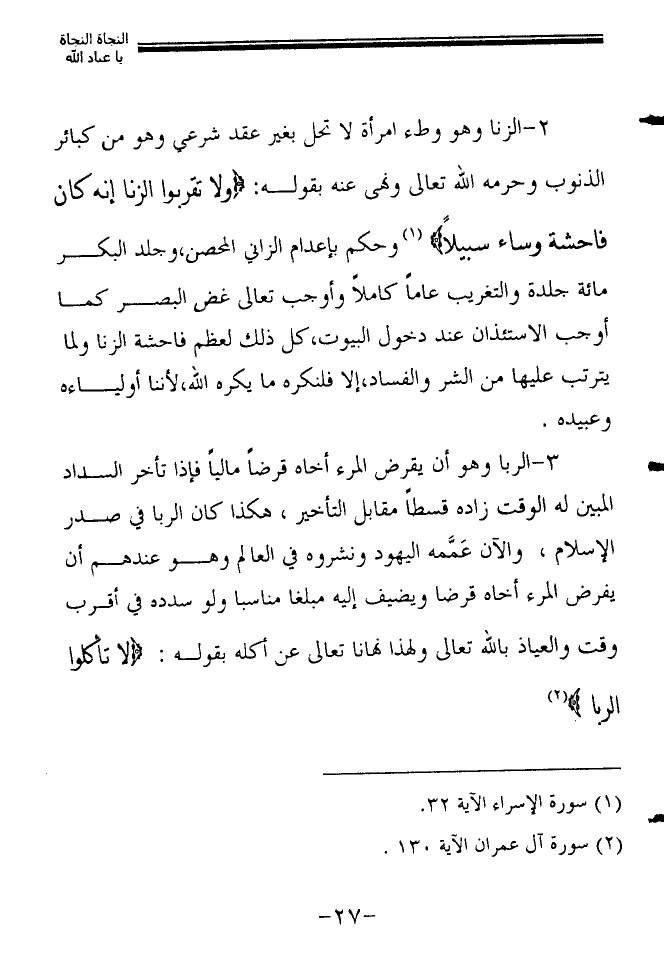 النجاة النجاة
يا عباد الله
٢-الزنا وهو وطء امرأة لا تحل بغير عقد شرعي وهو من كبائر
الذنوب وحرمه الله تعالى ونهى عنه بقولـــه: ﴿ولا تقربوا الزنا إنه كان
فاحشة وساء سبيلاً﴾ (١) وحكم بإعدام الزاني المحصن،وجلد البكـــر
مائة جلدة والتغريب عاماً كاملاً وأوجب تعالى غض البصـــر كمـــا
أوجب الاستئذان عند دخول البيوت،كل ذلك لعظم فاحشة الزنا ولما
يترتب عليها من الشر والفساد،إلا فلنكره ما يكره الله،لأننا أوليـــاءه
وعبيده .
٣-الربا وهو أن يقرض المرء أخاه قرضاً مالياً فإذا تأخر الســـداد
المبين له الوقت زاده قسطاً مقابل التأخير ، هكذا كان الربا في صـــدر
الإسلام ، والآن عَمَّمه اليهود ونشروه في العالم وهـــو عندهـــم أن
يفرض المرء أخاه قرضا ويضيف إليه مبلغا مناسبا ولو سدده في أقرب
وقت والعياذ بالله تعالى ولهذا نهانا تعالى عن أكله بقولـــه : ﴿لا تأكلوا
الربا ﴾(٢)
(١) سورة الإسراء الآية ٣٢.
(٢) سورة آل عمران الآية ١٣٠ .
-٢٧-